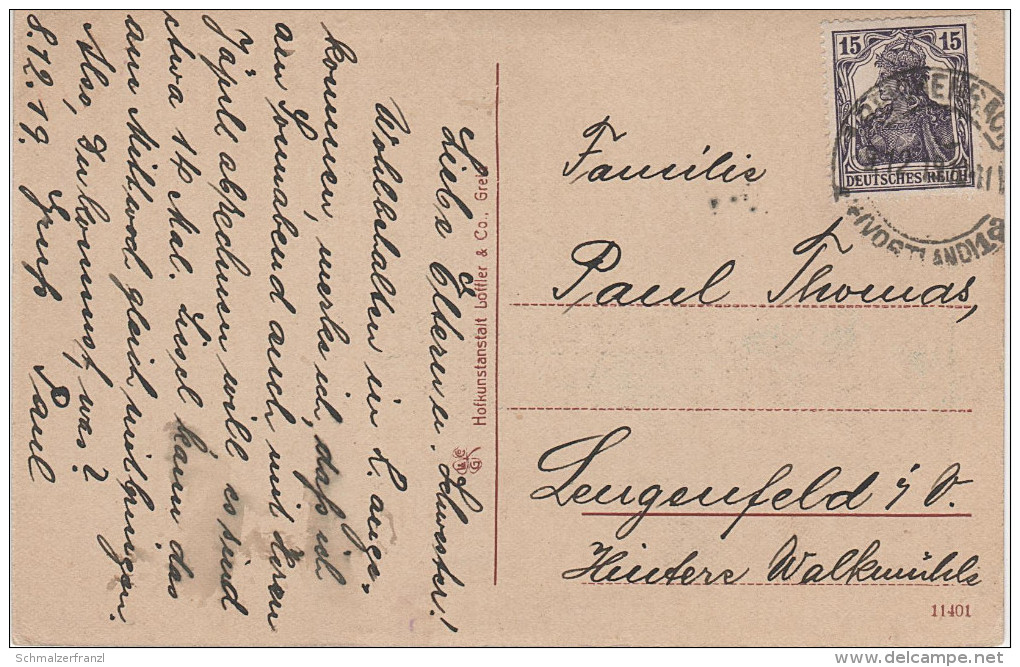 Liebe Eltern u. Schwester!
Wohlbehalten in L. ange-
kommen, merke ich, daß ich
am Sonnabend auch mit Herrn
abrechnen will es sind
etwa 14 Mal. Liesel kann das
am Mittwoch gleich mitbringen.
Also, Zukunft, was?
8.12.19. Gruß Paul
Hofkunstanstalt Löffler & Co., Greiz
15 15
DEUTSCHES REICH
(VOGTLAND)
Familie
Paul Thomas,
Lengenfeld i/V.
Hintere Walkmühle
11401
Schmalzerfranzl